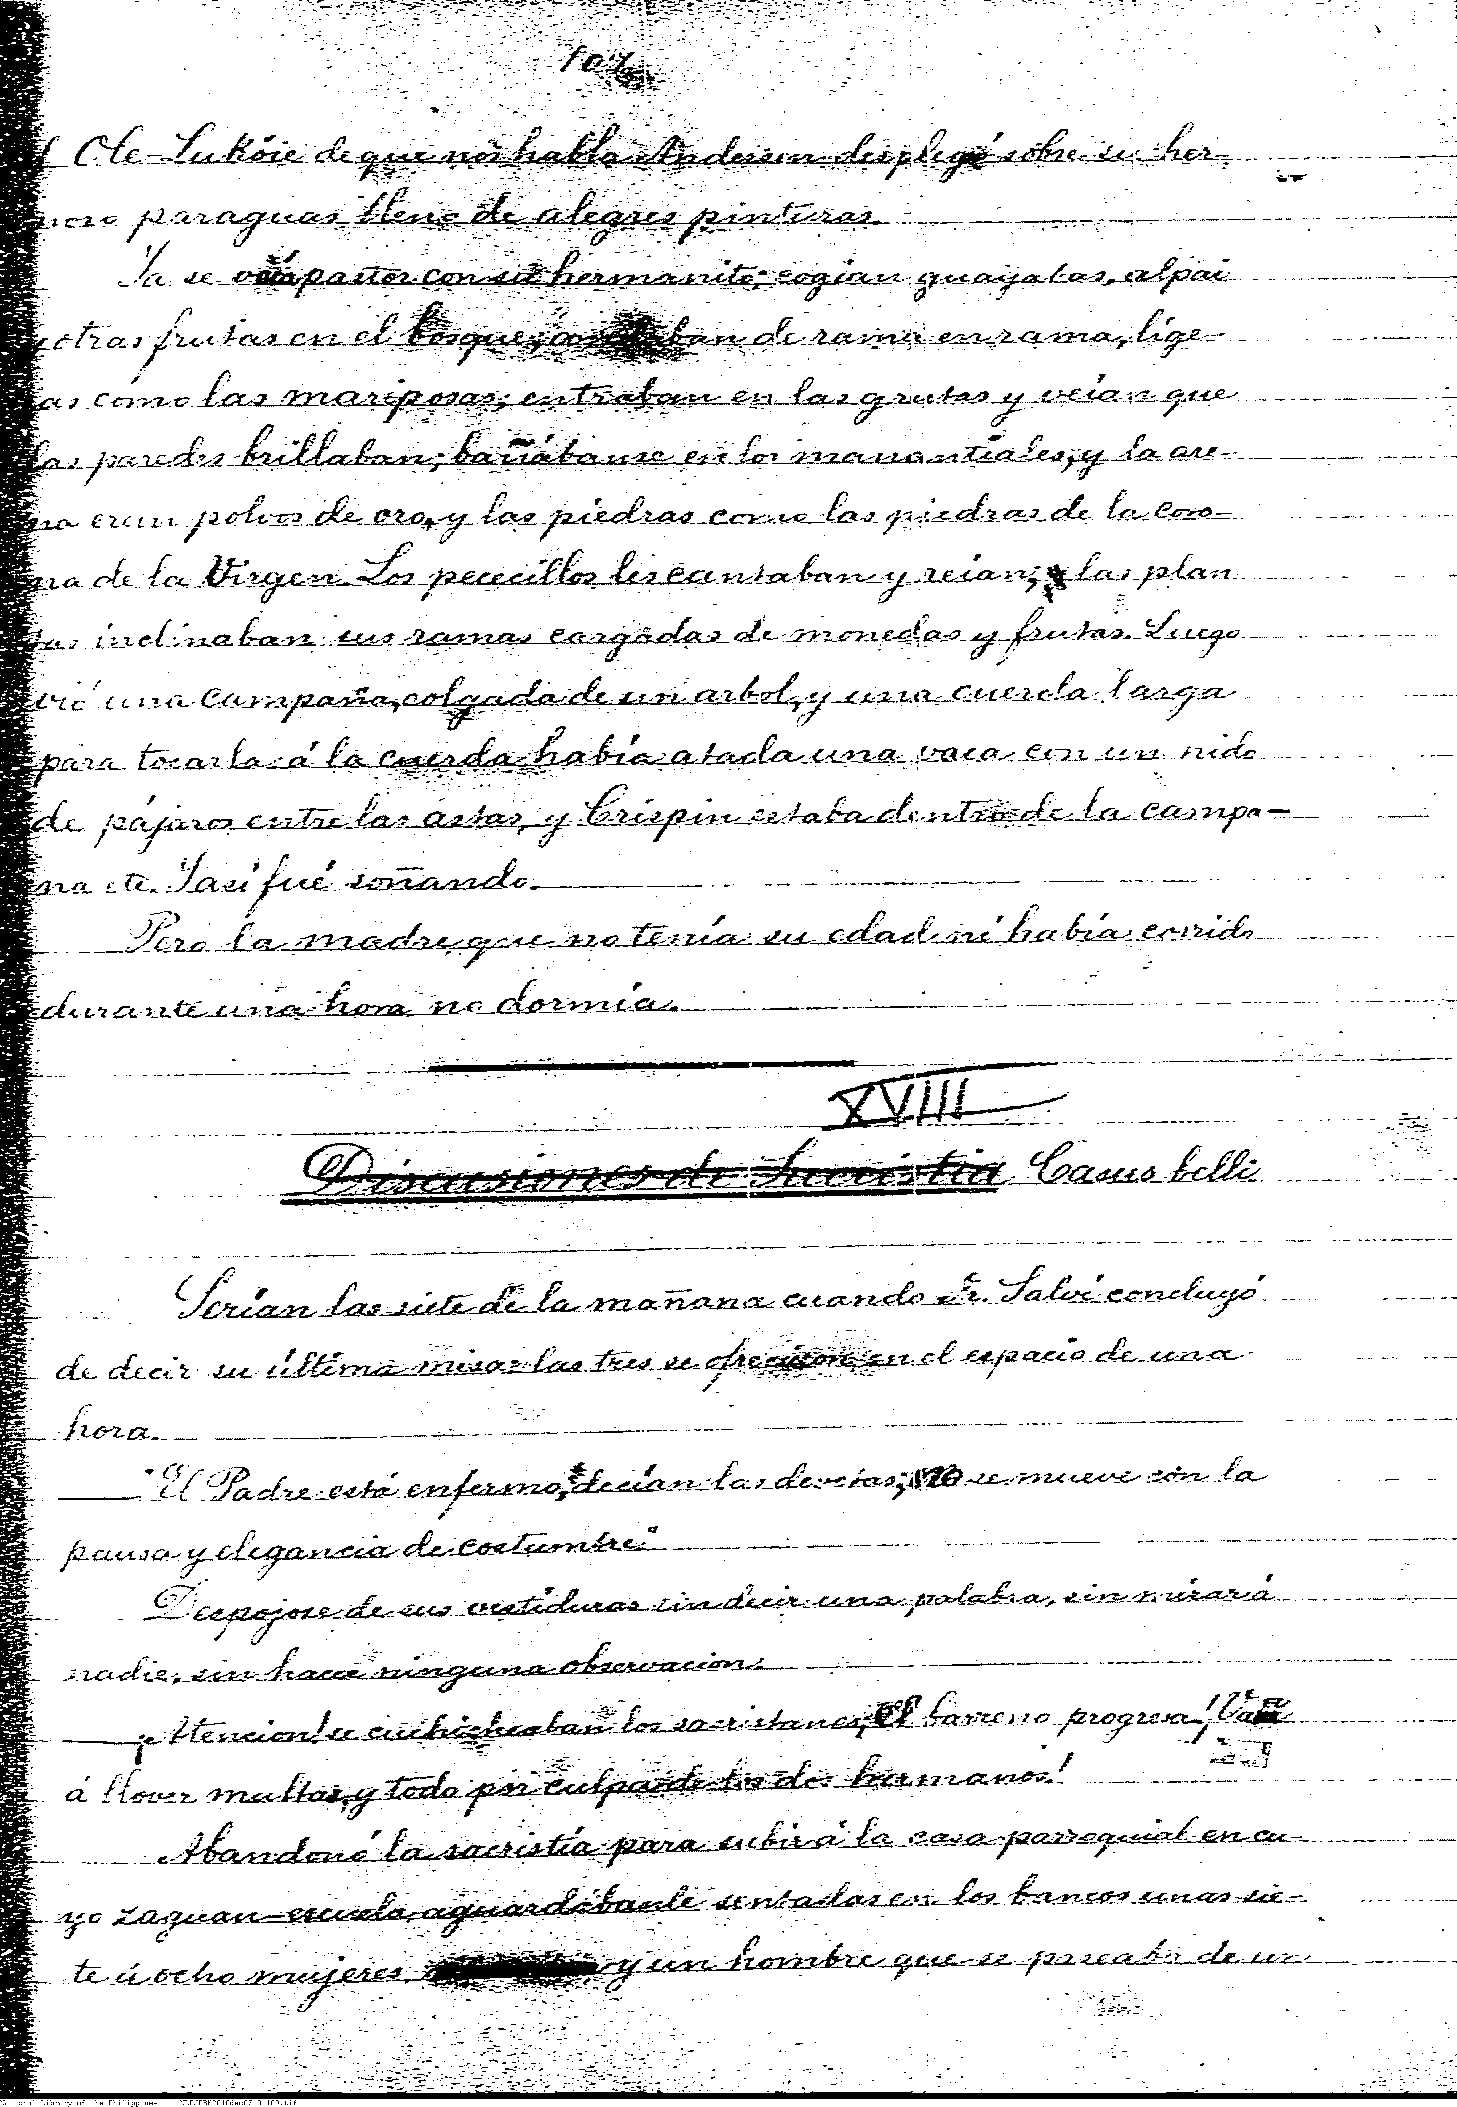 107
Ole-Luköie de que nos habla Andersen desplegó sobre su her-
moso paraguas lleno de alegres pinturas.
Ya se veía pastor con su hermanito: cogían guayabas, alpai
y otras frutas en el bosque; andaban de rama en rama, lige-
ras cómo las mariposas; entraban en las grutas y veían que
las paredes brillaban; bañábanse en los manantiales, y la are-
na eran polvos de oro, y las piedras como las piedras de la coro-
na de la Virgen. Los pececillos les cantaban y reían; las plan
tas inclinaban sus ramas cargadas de monedas y frutas. Luego
vió una campaña, colgada de un arbol, y una cuerda larga
para tocarla: á la cuerda había atada una vaca con un nido
de pájaros entre las astas, y Crispin estaba dentro de la campa-
na etc. Y así fué soñando.
Pero la madre, que no tenía su edad ni había corrido
durante una hora no dormía.
XVIII
Discusiones de Sacristia Casus belli
Serían las siete de la mañana cuando Fr. Salví concluyó
de decir su última misa: las tres se ofrecieron en el espacio de una
hora.
"El Padre está enfermo, decían las devotas; no se mueve con la
pausa y elegancia de costumbre."
Despojose de sus vestiduras sin decir una palabra, sin mirar á
nadie, sin hacer ninguna observacion.
¡Atencion! se cuchicheaban los sacristanes, ¡El barreno progresa! Van
á llover multas, y todo por culpa de los dos hermanos!
Abandonó la sacristía para subir á la casa parroquial en cu-
yo zaguan-escuela aguardábanle sentadas en los bancos unas sie-
te ú ocho mujeres y un hombre que se paseaba de un